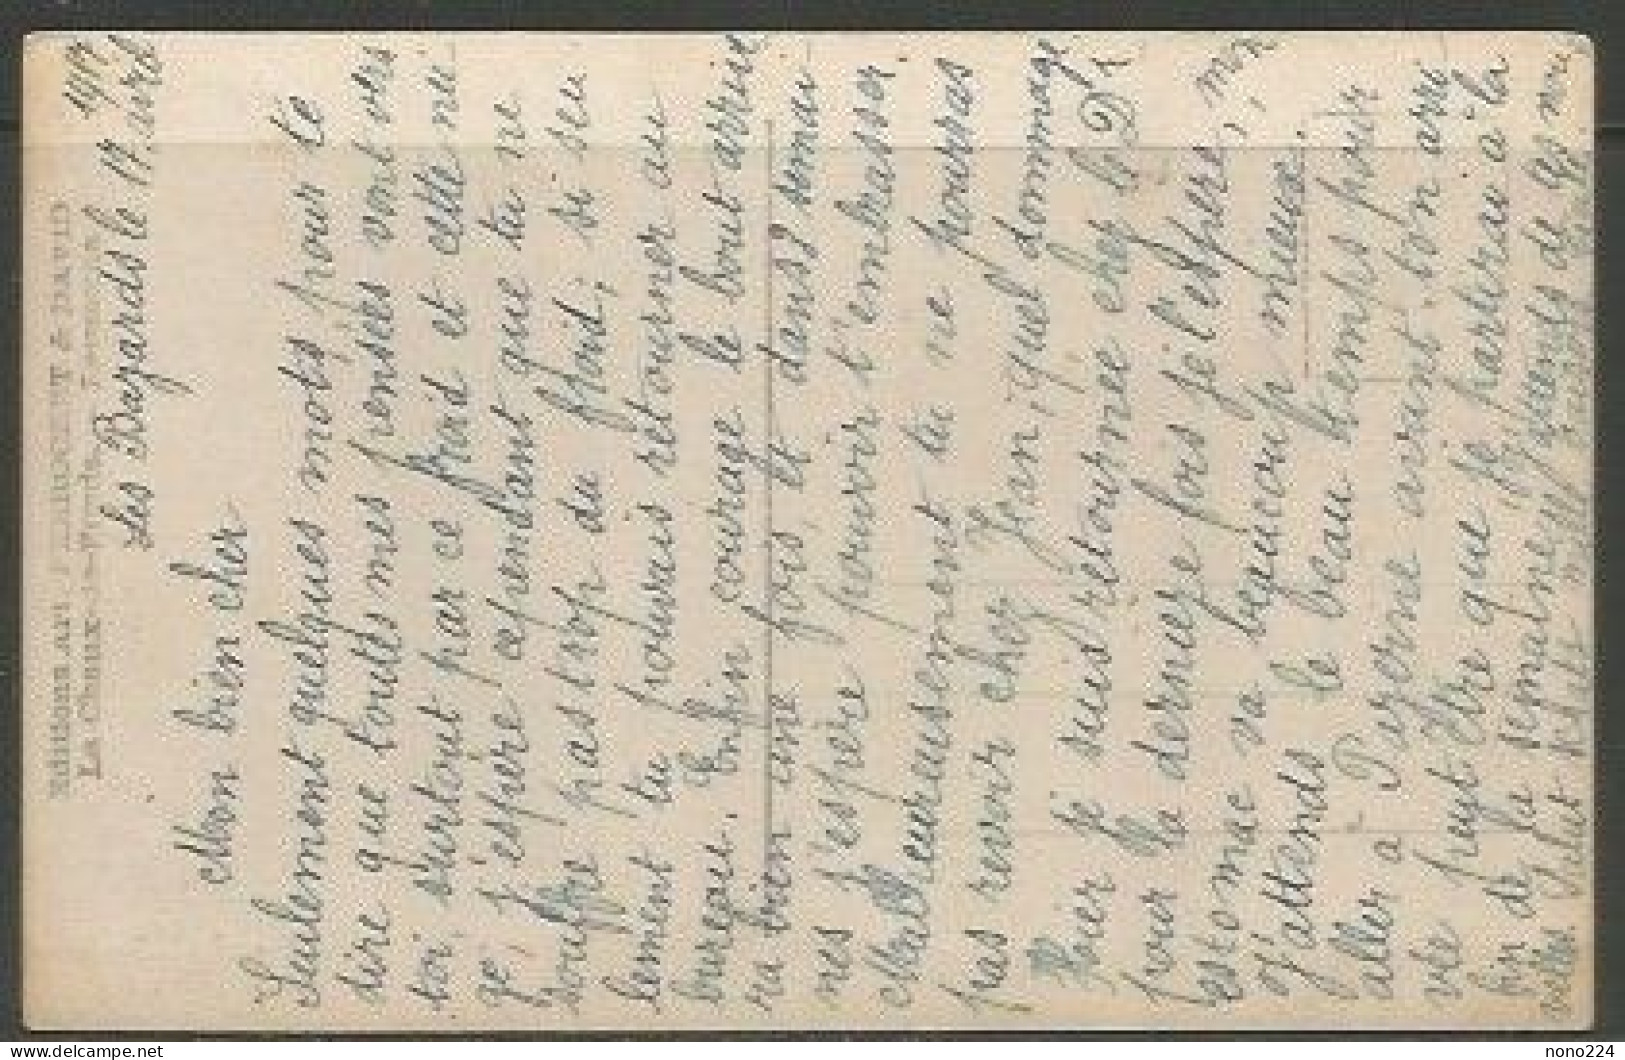 Editions Art. J & DAVID
La Chaux-de-Fonds
1917
Les Bayards le 17. mars
Mon bien cher
Seulement quelques mots pour te
dire que toutes mes pensées vont vers
toi, surtout par ce froid et cette nei
ge, j'espère cependant que tu ne
souffre pas trop du froid, si seu
lement tu pouvais retourner au
bureau. Enfin courage le bout arrive
ra bien une fois, et dans 2 semai
nes j'espère pouvoir t'embrasser.
Malheureusement tu ne pourras
pas revoir cher Jean, quel dommage
Hier je suis retournée chez le Dr
pour la dernière fois je l'espère, mon
estomac va beaucoup mieux.
J'attends le beau temps pour
aller à Payerne avant ton arri
vée peut être que je partirai à la
fin de la semaine
velles.
delcampe.net
nono224